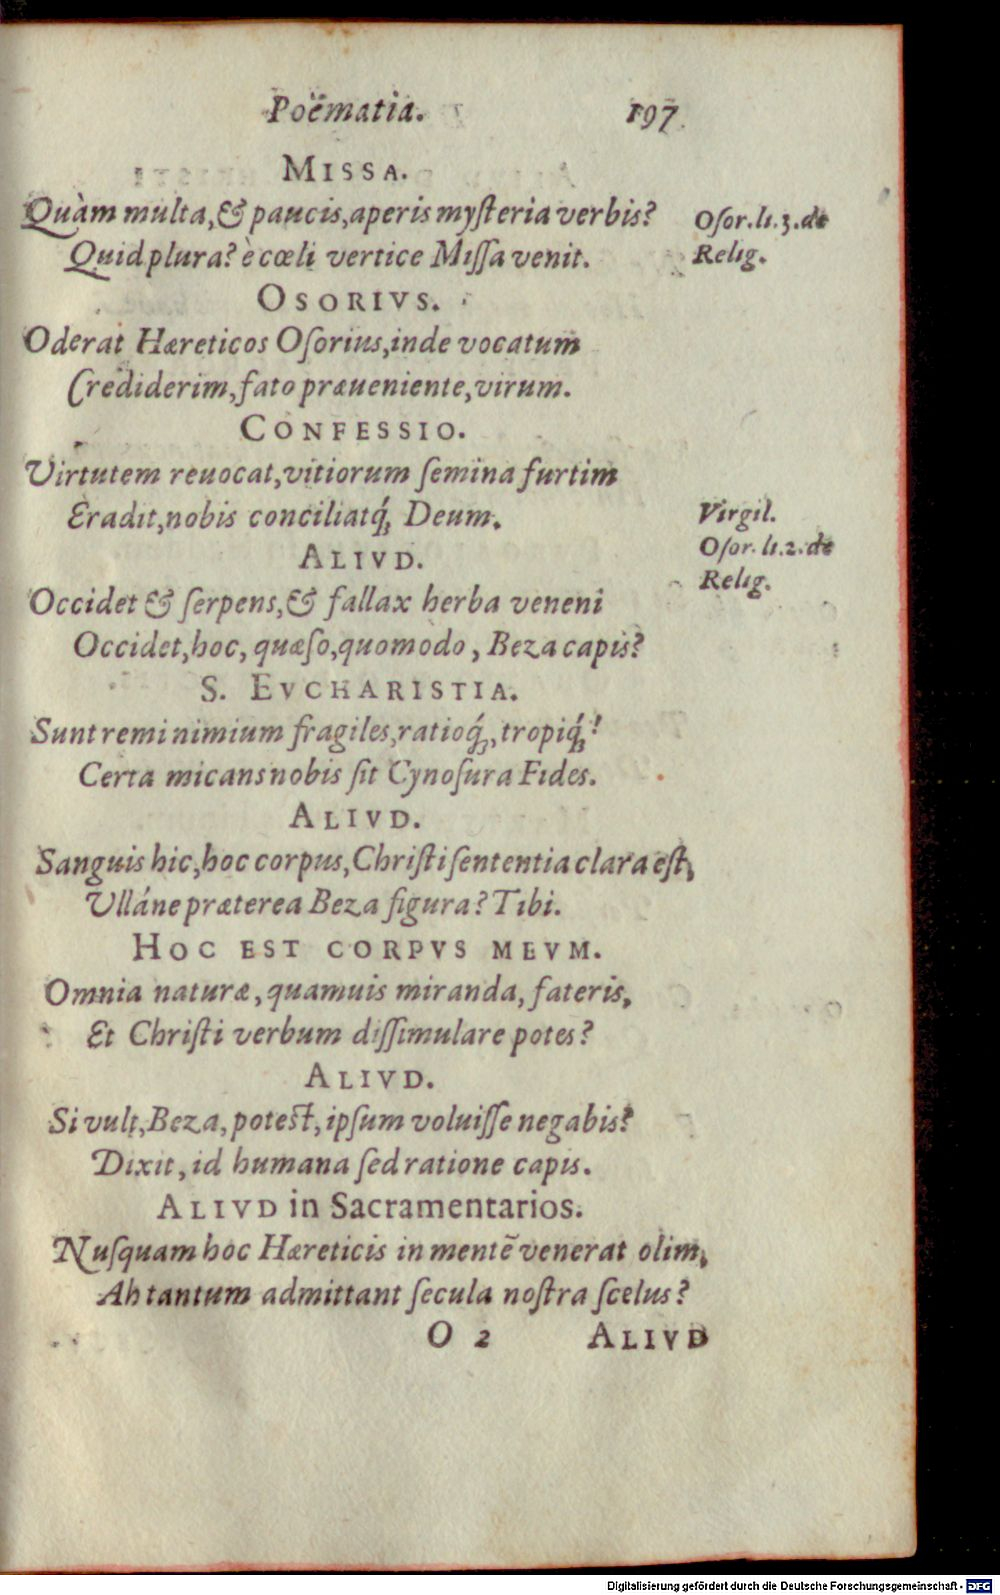 Poëmatia. 197
MISSA.
Quàm multa, & paucis, aperis mysteria verbis? Osor. li. 3. de
Quid plura? è cœli vertice Missa venit. Relig.
OSORIVS.
Oderat Hæreticos Osorius, inde vocatum
Crediderim, fato præueniente, virum.
CONFESSIO.
Virtutem reuocat, vitiorum semina furtim
Eradit, nobis conciliatq́; Deum. Virgil.
ALIVD. Osor. li. 2. de
Occidet & serpens, & fallax herba veneni Relig.
Occidet, hoc, quæso, quomodo, Beza capis?
S. EVCHARISTIA.
Sunt remi nimium fragiles, ratioq́;, tropiq́;!
Certa micans nobis sit Cynosura Fides.
ALIVD.
Sanguis hic, hoc corpus, Christi sententia clara est,
Vlláne præterea Beza figura? Tibi.
HOC EST CORPVS MEVM.
Omnia naturæ, quamuis miranda, fateris,
Et Christi verbum dissimulare potes?
ALIVD.
Si vult, Beza, potest, ipsum voluisse negabis?
Dixit, id humana sed ratione capis.
ALIVD in Sacramentarios.
Nusquam hoc Hæreticis in mentē venerat olim,
Ah tantum admittant secula nostra scelus?
O 2 ALIVD
Digitalisierung gefördert durch die Deutsche Forschungsgemeinschaft - DFG